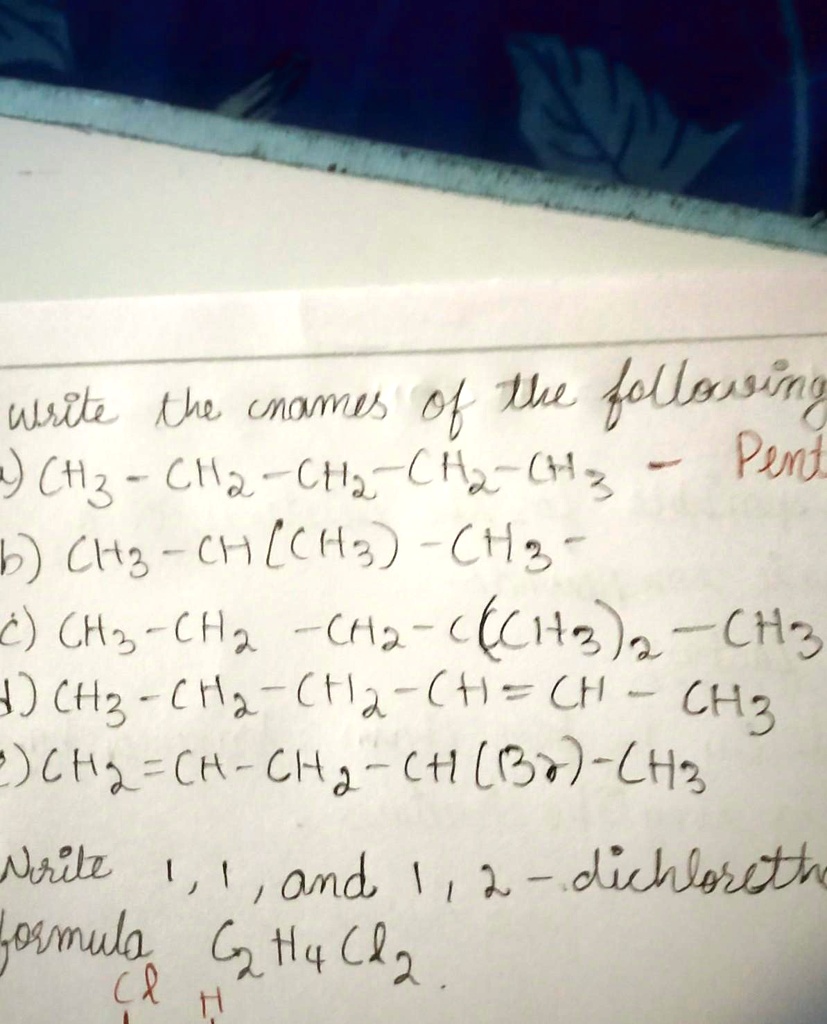 write the names of the following
a) CH3 - CH2 - CH2 - CH2 - CH3 - Pent
b) CH3 - CH [CH3) - CH3 -
c) CH3 - CH2 - CH2 - C((CH3)2 - CH3
d) CH3 - CH2 - CH2 - CH = CH - CH3
e) CH2 = CH - CH2 - CH (Br) - CH3
Write 1, 1, and 1, 2 - dichloreth
formula C2H4Cl2.
Cl H